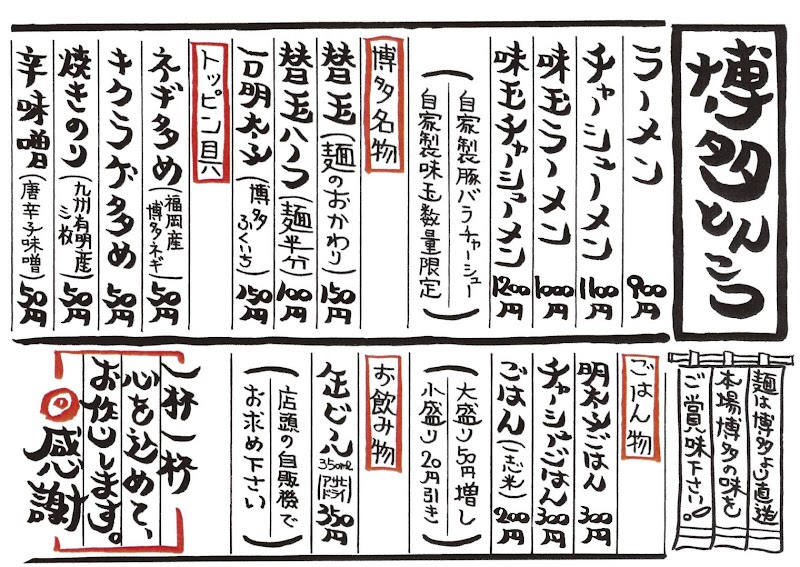 博多とんこつ
ラーメン 900円
チャーシューメン 1100円
味玉ラーメン 1000円
味玉チャーシューメン 1200円
(自家製豚バラチャーシュー
自家製味玉数量限定)
博多名物
替玉(麺のおかわり) 150円
替玉ハーフ(麺半分) 100円
一口明太子(博多ふくいち) 150円
トッピン具
ネギ多め(福岡産博多ネギ) 50円
キクラゲ多め 50円
焼きのり(九州有明産三枚) 50円
辛味噌(唐辛子味噌) 50円
麺は博多より直送
本場博多の味を
ご賞味下さい。
ごはん物
明太子ごはん 300円
チャーシューごはん 300円
ごはん(一志米) 200円
(大盛り50円増し
小盛り20円引き)
お飲み物
缶ビール 350ml アサヒドライ 350円
(店頭の自販機で
お求め下さい)
一杯一杯
心を込めて、
お作りします。
感謝